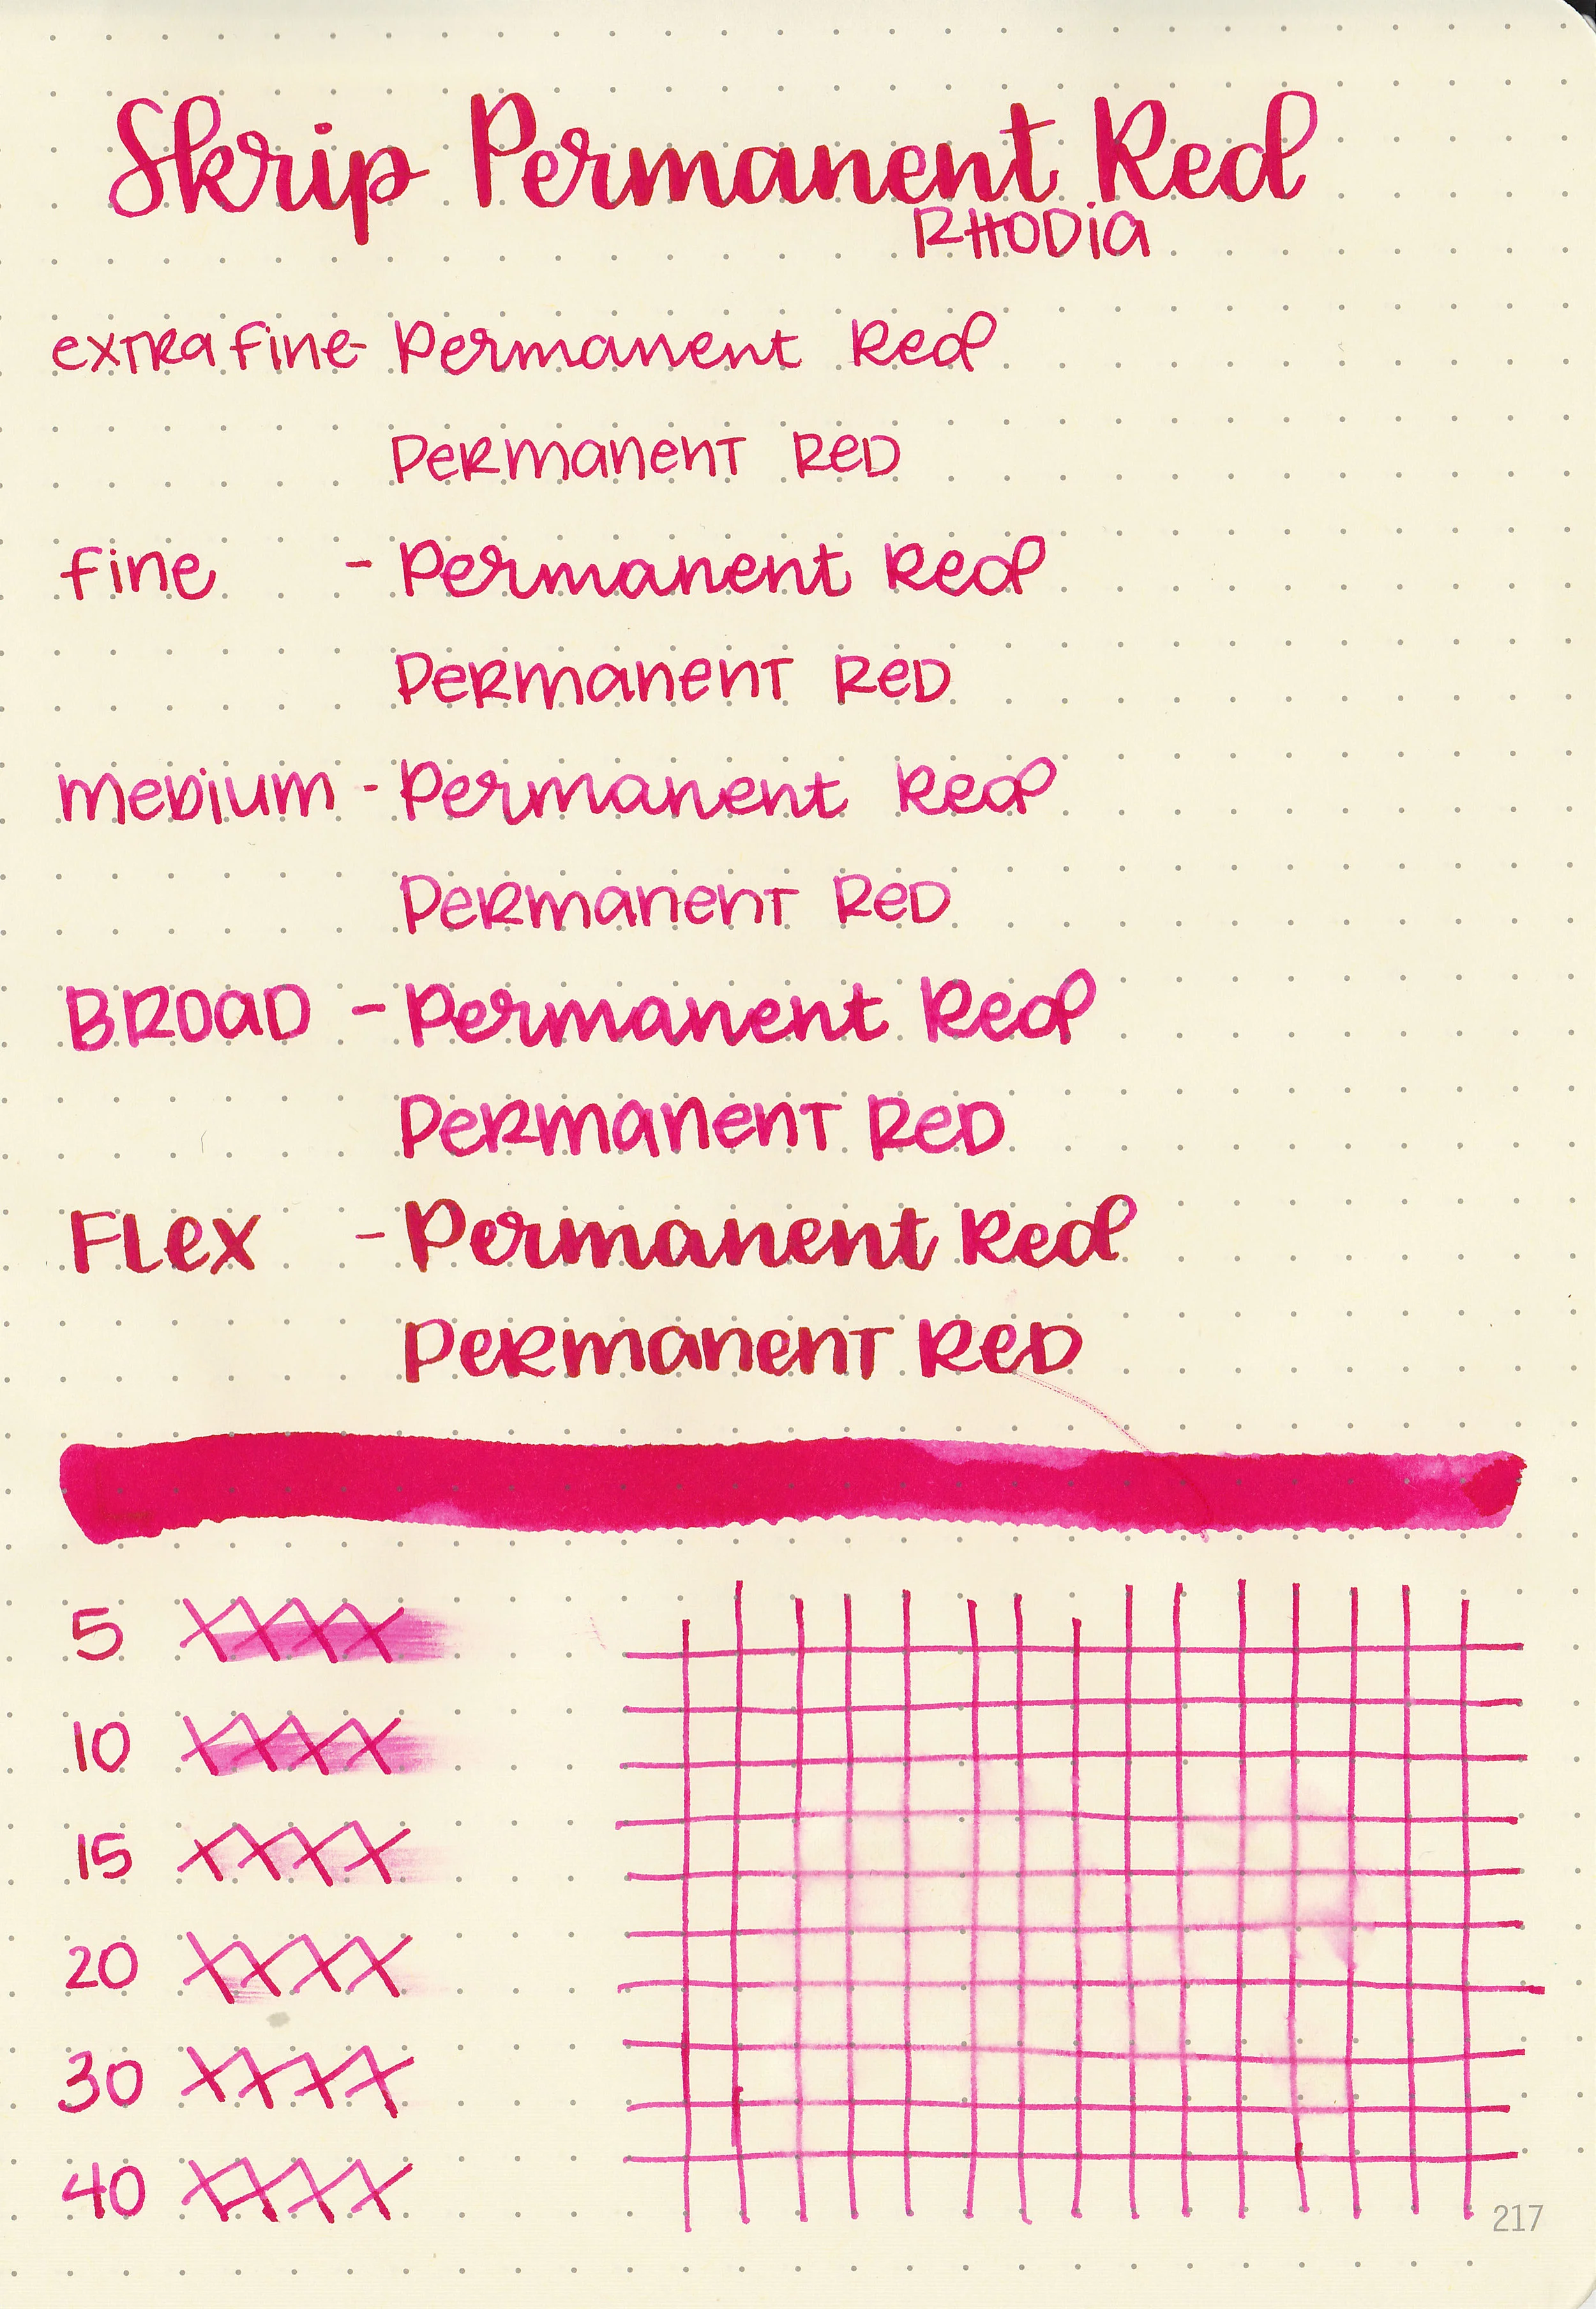 Skrip Permanent Red
RHODia
extra fine - Permanent Red
Permanent Red
fine - Permanent Red
Permanent Red
medium - Permanent Red
Permanent Red
BROAD - Permanent Red
Permanent Red
FLex - Permanent Red
Permanent Red
5 XXXX
10 XXXX
15 XXXX
20 XXXX
30 XXXX
40 XXXX
217